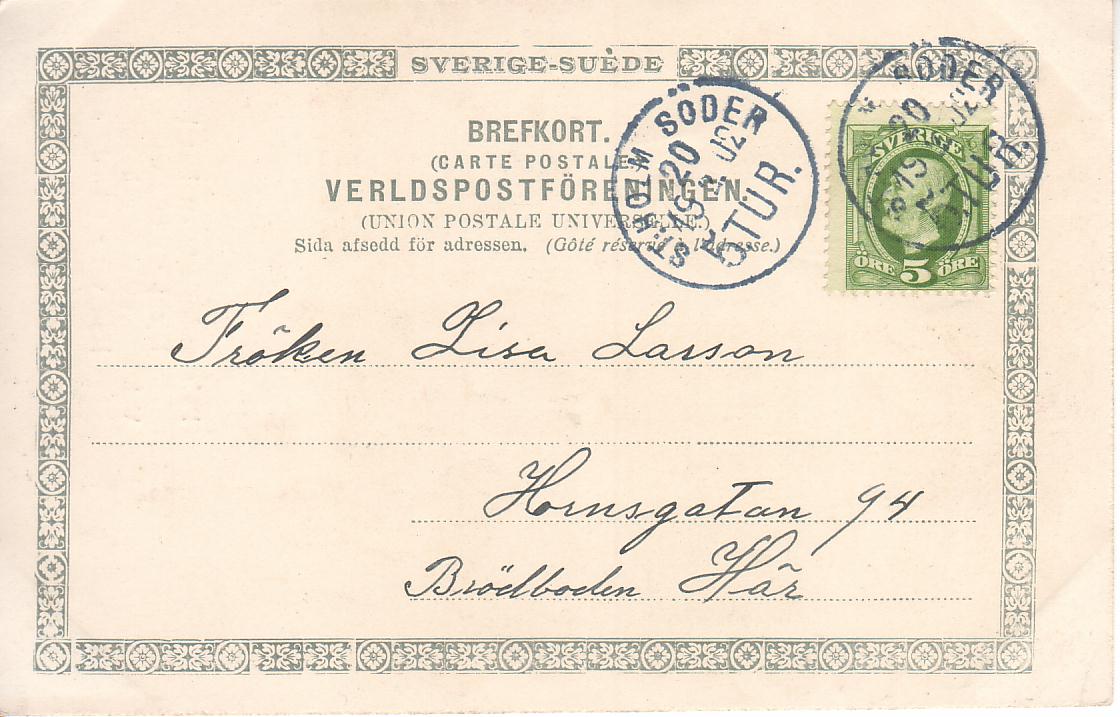 SVERIGE-SUÈDE
BREFKORT.
(CARTE POSTALE)
VERLDSPOSTFÖRENINGEN.
(UNION POSTALE UNIVERSELLE.)
Sida afsedd för adressen. (Côté réservé à l'adresse.)
STHOLM SÖDER
20
19 02
5 TUR.
SÖDER
20
19 02
5 TUR.
SVERIGE
ÖRE 5 ÖRE
Fröken Lisa Larson
Hornsgatan 94
Brödboden Här